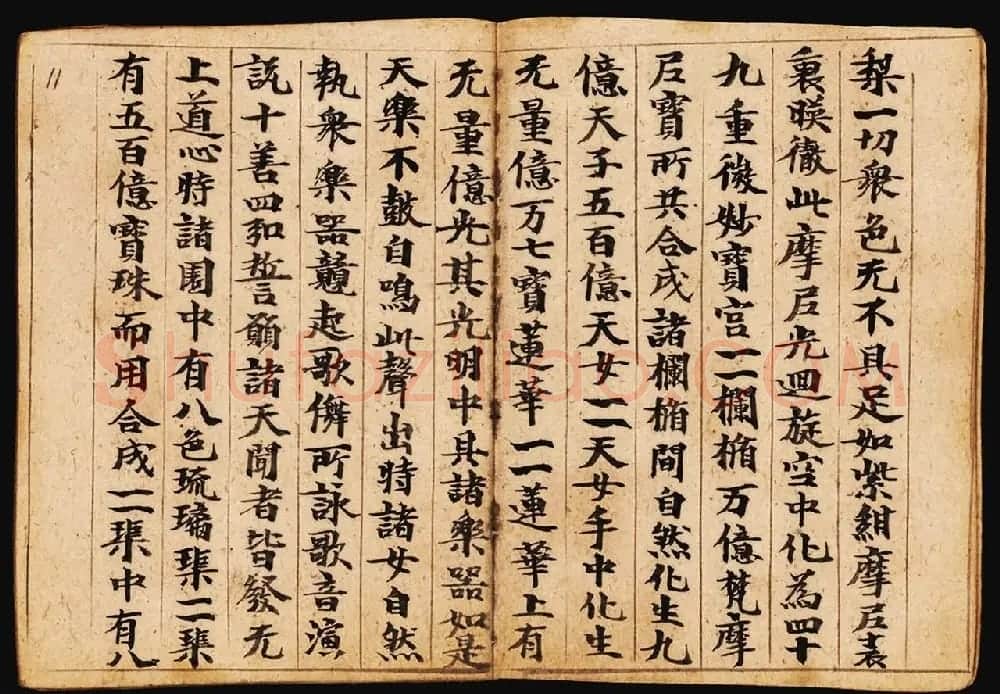 梨一切衆色无不具足如紫紺摩尼表
裏暎徹此摩尼光迴旋空中化為四十
九重微妙寶宫一一欄楯万億梵摩
尼寶所共合成諸欄楯間自然化生九
億天子五百億天女一一天女手中化生
无量億万七寶蓮華一一蓮華上有
无量億光其光明中具諸樂器如是
天樂不鼓自鳴此聲出時諸女自然
執衆樂器競起歌儛所詠歌音演
説十善四弘誓願諸天聞者皆發无
上道心時諸園中有八色琉璃渠一一渠
有五百億寶珠而用合成一一渠中有八
11
shufazidao.COM